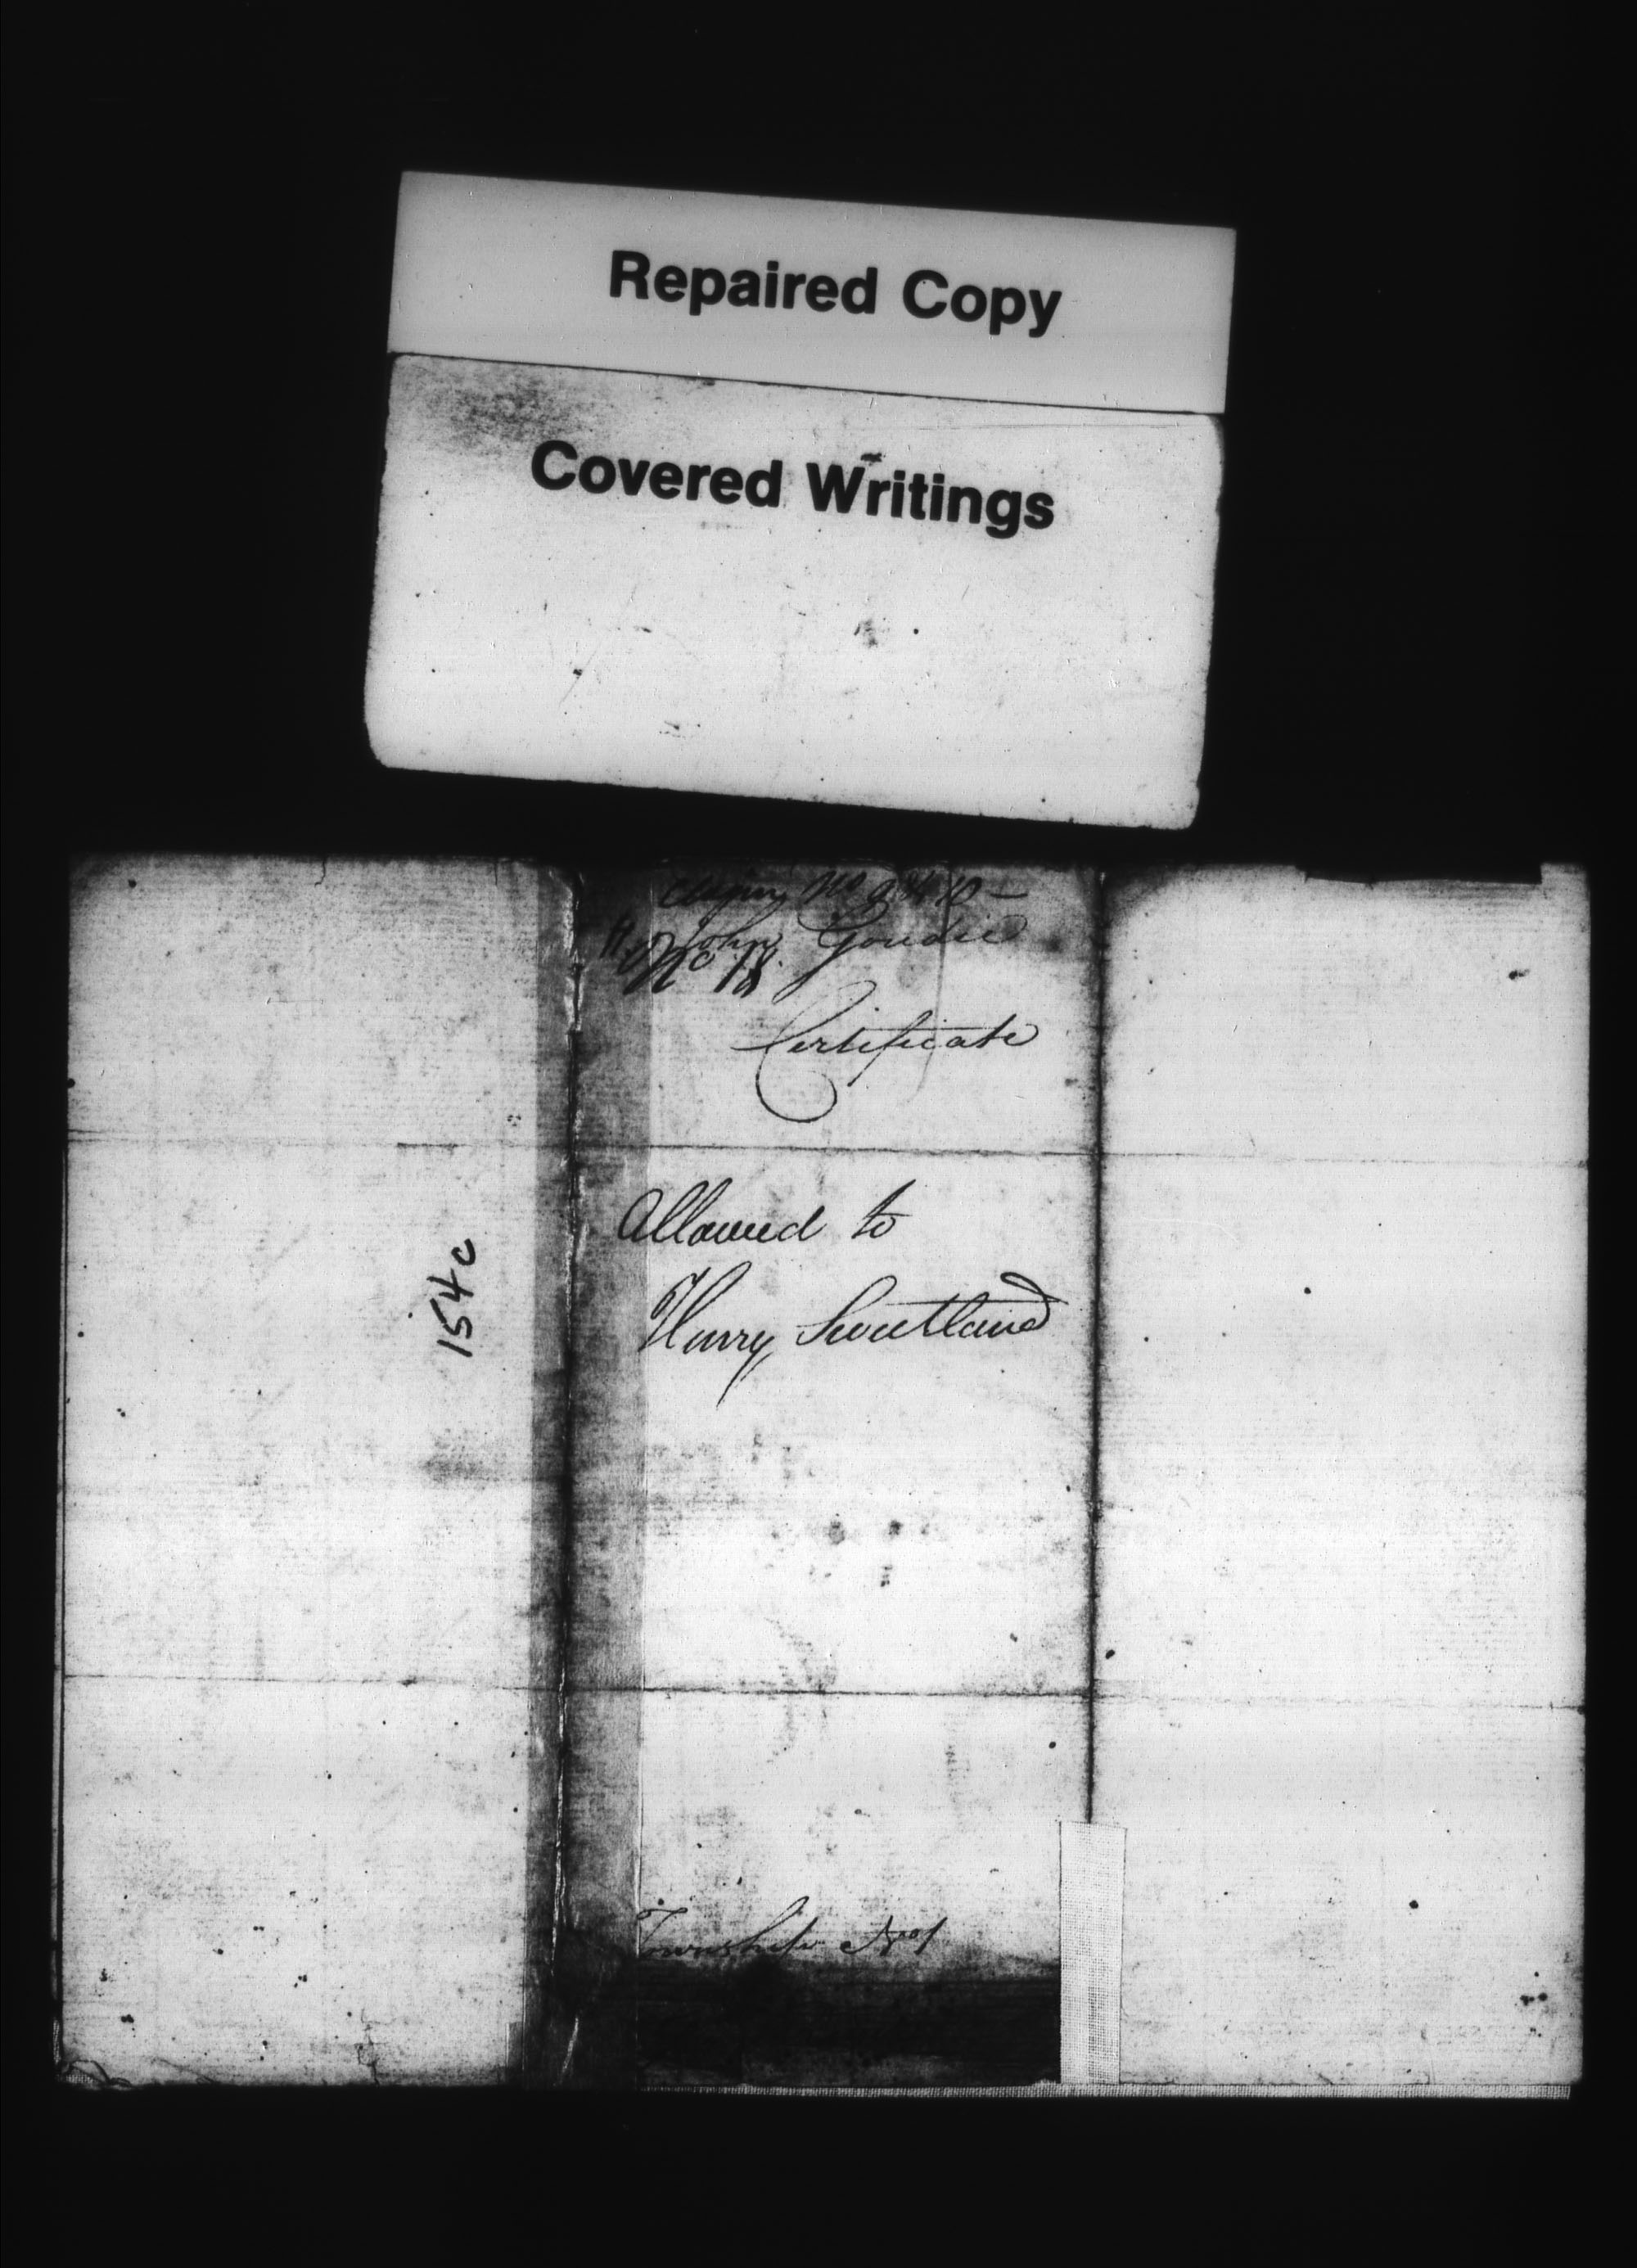 Repaired Copy
Covered Writings
No
John Goudie
No 18.
Certificate
Allowed to
Harry Sweetland
154c
Township No 1